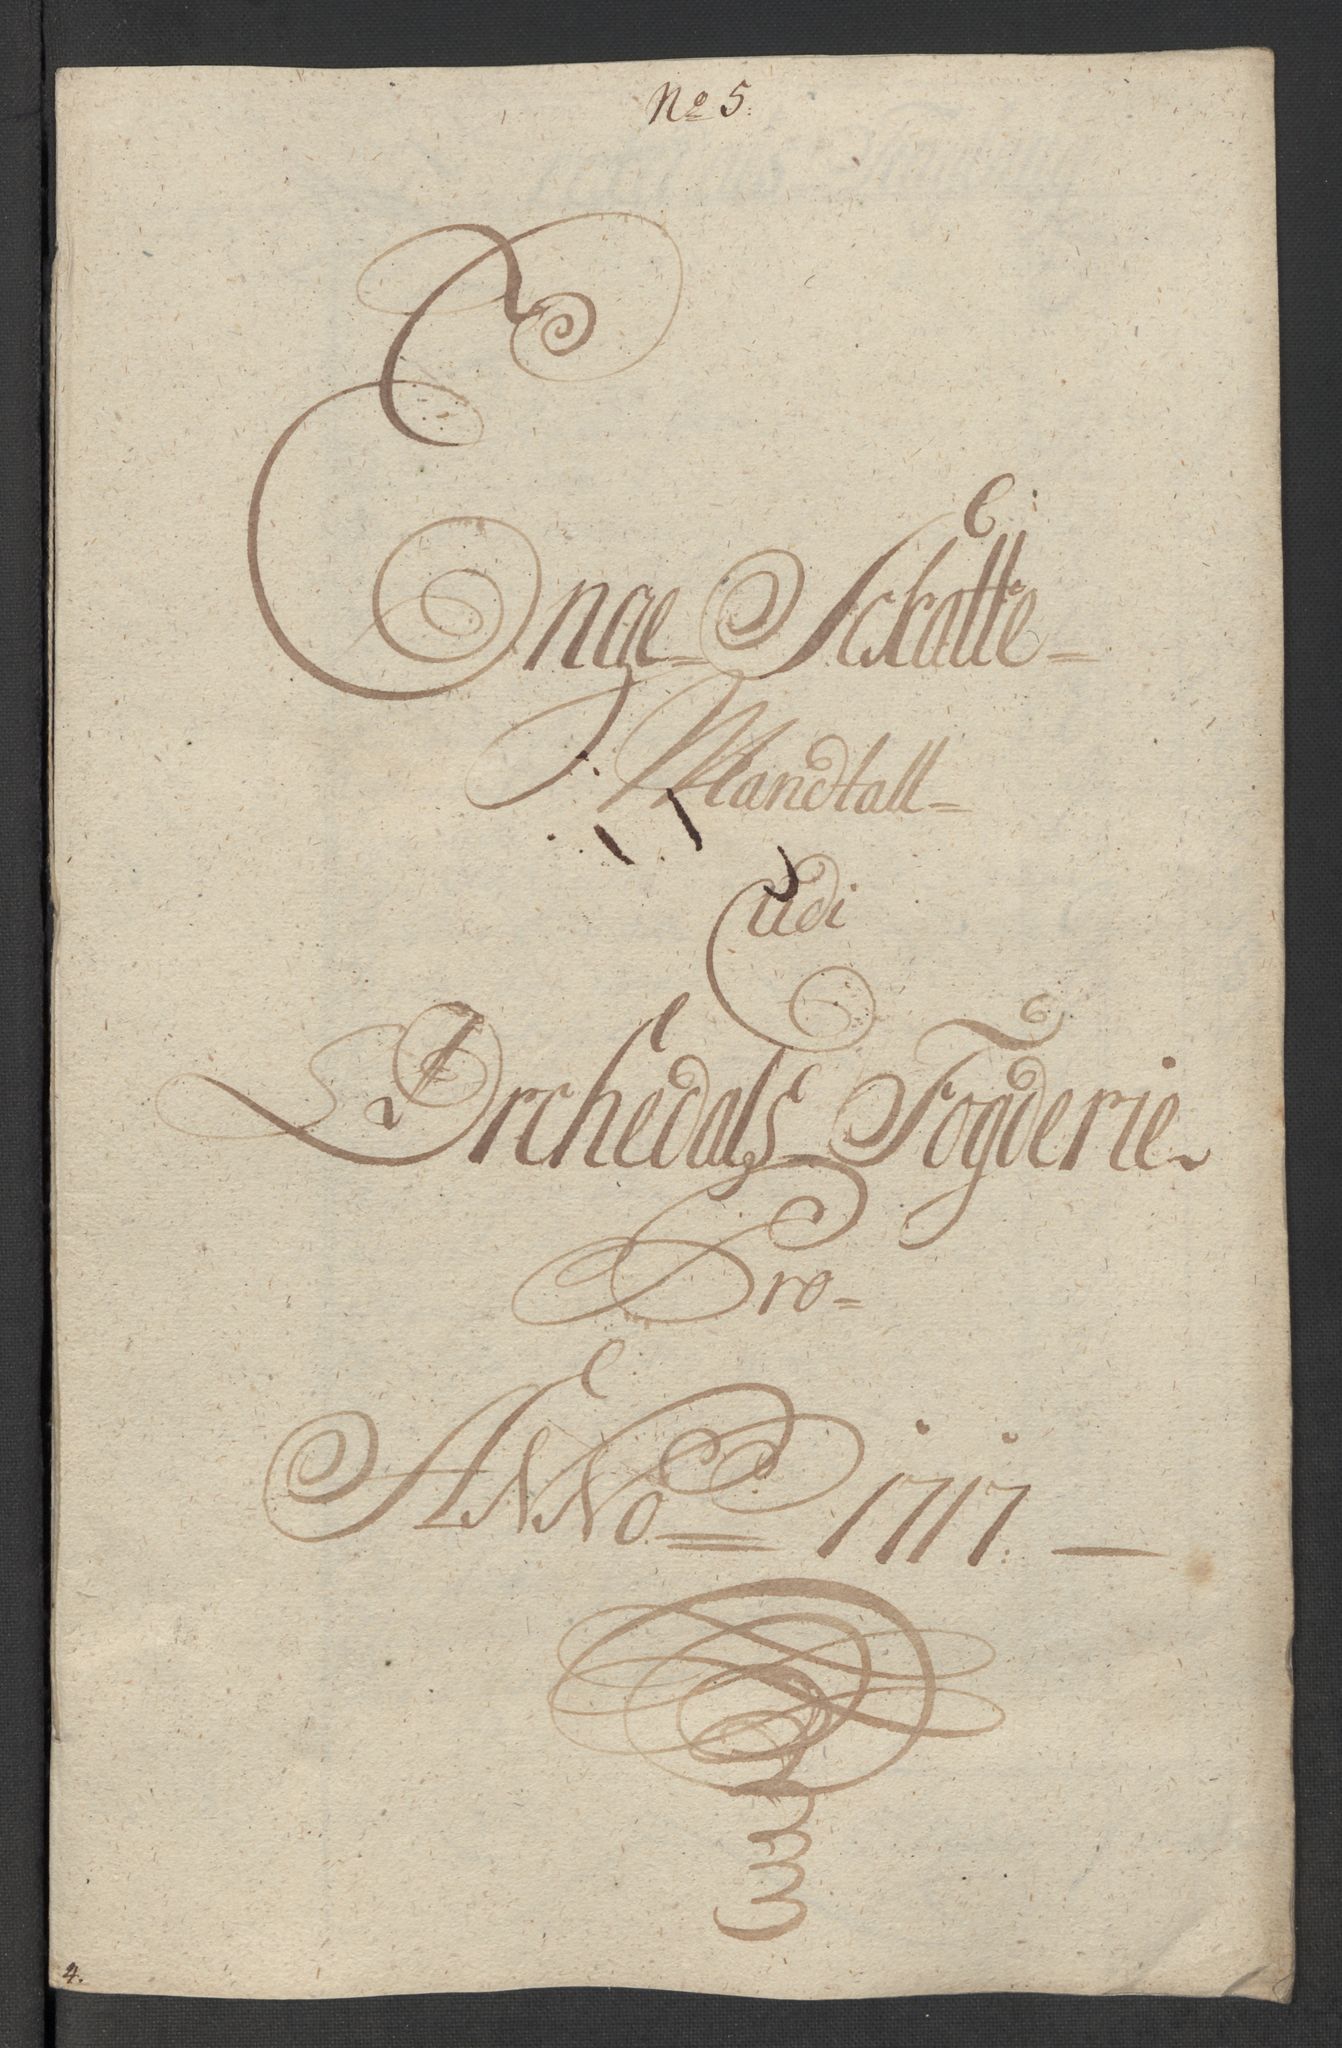 No 5.
Enge Schatte-
Mandtall-
udi
Orchedals Fogderie
Pro-
ANNo = 1717. —
4.